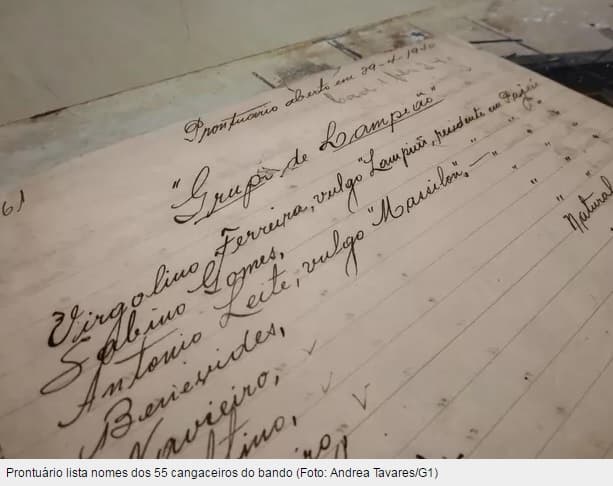 Prontuario aberto em 29-4-1930
61
"Grupo de Lampeão"
Virgolino Ferreira, vulgo "Lampeão, residente em Pageú
Sabino Gomes, " " "
Antonio Leite, vulgo "Massilon", — " " "
Benevides, " " Natural
Navieiro,
tino,
eiro,
Prontuário lista nomes dos 55 cangaceiros do bando (Foto: Andrea Tavares/G1)